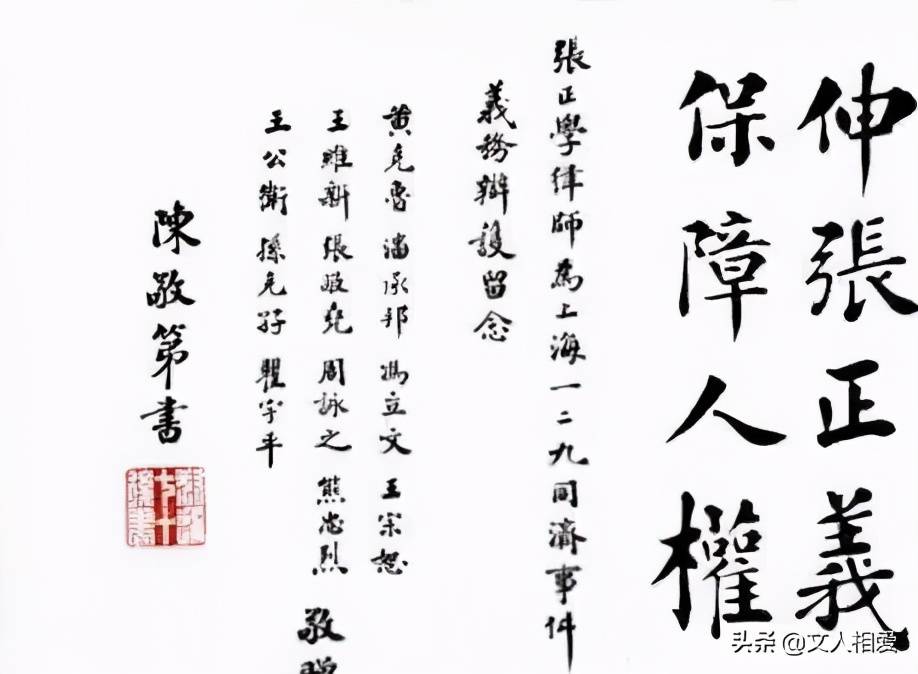 伸張正義
保障人權
張正學律師為上海一二九同濟事件
義務辯護留念
黃克魯 潘承邦 馮立文 王宗恕
王維新 張政堯 周詠之 熊忠烈
王公衛 孫克 瞿宇平
敬贈
陳敬第書
头条 @文人相爱